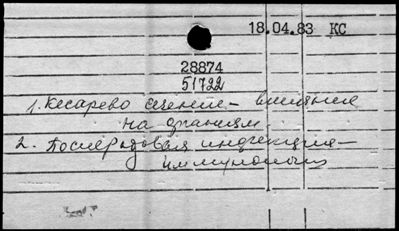 18.04.83 КС
28874
51722
1. Кесарево сечение - влияние
на организм
2. Послеродовая инфекция -
иммунология